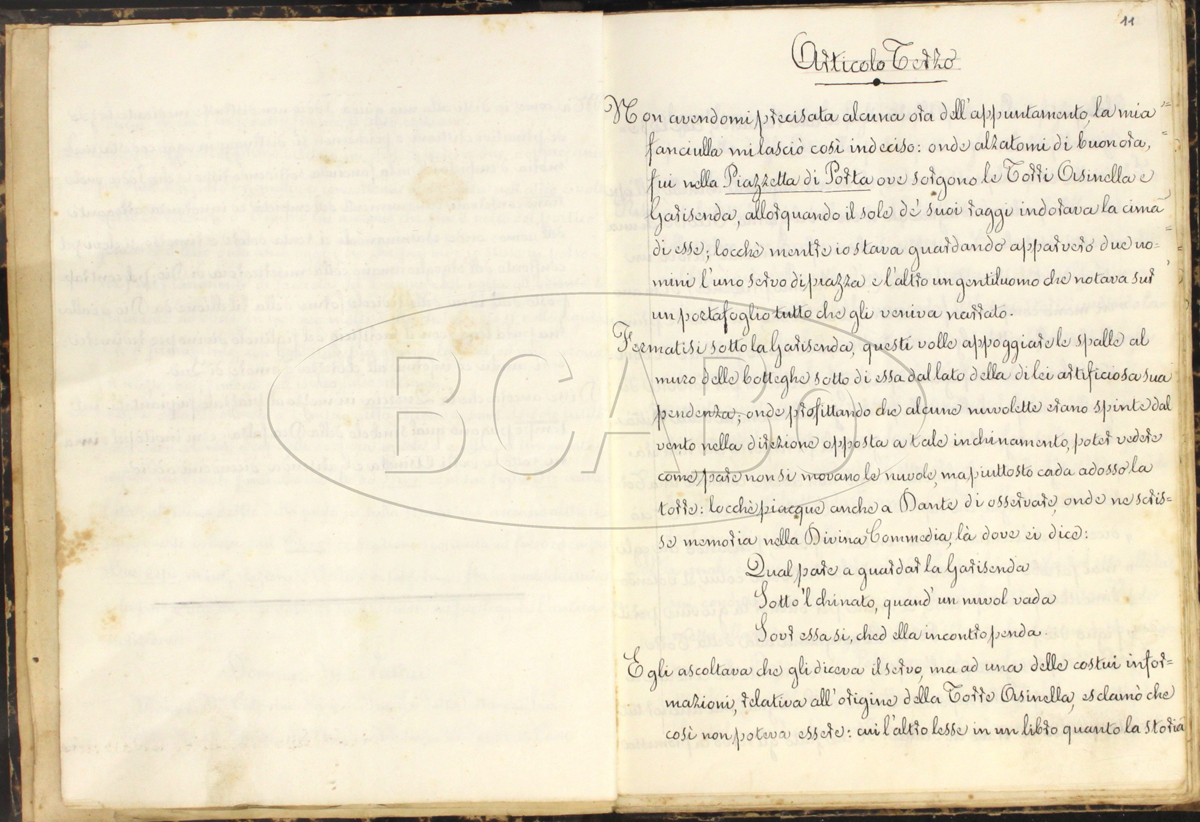 11
Articolo Terzo
Non avendomi precisata alcuna ora dell'appuntamento, la mia
fanciulla mi lasciò così indeciso: onde alzatomi di buon'ora,
fui nella Piazzetta di Porta ove sorgono le Torri Asinella e
Garisenda, allorquando il sole de' suoi raggi indorava la cima
di esse; locchè mentre io stava guardando apparvero due uo=
mini l'uno servo di piazza, e l'altro un gentiluomo che notava sur
un portafoglio tutto che gli veniva narrato.
Fermatisi sotto la Garisenda, questi volle appoggiare le spalle al
muro delle botteghe sotto di essa dal lato della di lei artificiosa sua
pendenza; onde profittando che alcune nuvolette erano spinte dal
vento nella direzione opposta a tale inchinamento, poter vedere
come pare non si movano le nuvole, ma piuttosto cada adosso la
torre: locchè piacque anche a Dante di osservare, onde ne scris=
se memoria nella Divina Commedia, là dove ei dice:
Qual pare a guardar la Garisenda
Sotto 'l chinato, quand' un nuvol vada
Sovr essa si, ched ella incontro penda.
Egli ascoltava che gli diceva il servo, ma ad una delle costui infor=
mazioni, relativa all'origine della Torre Asinella, esclamò che
così non poteva essere: cui l'altro lesse in un libro quanto la storia
BCABo